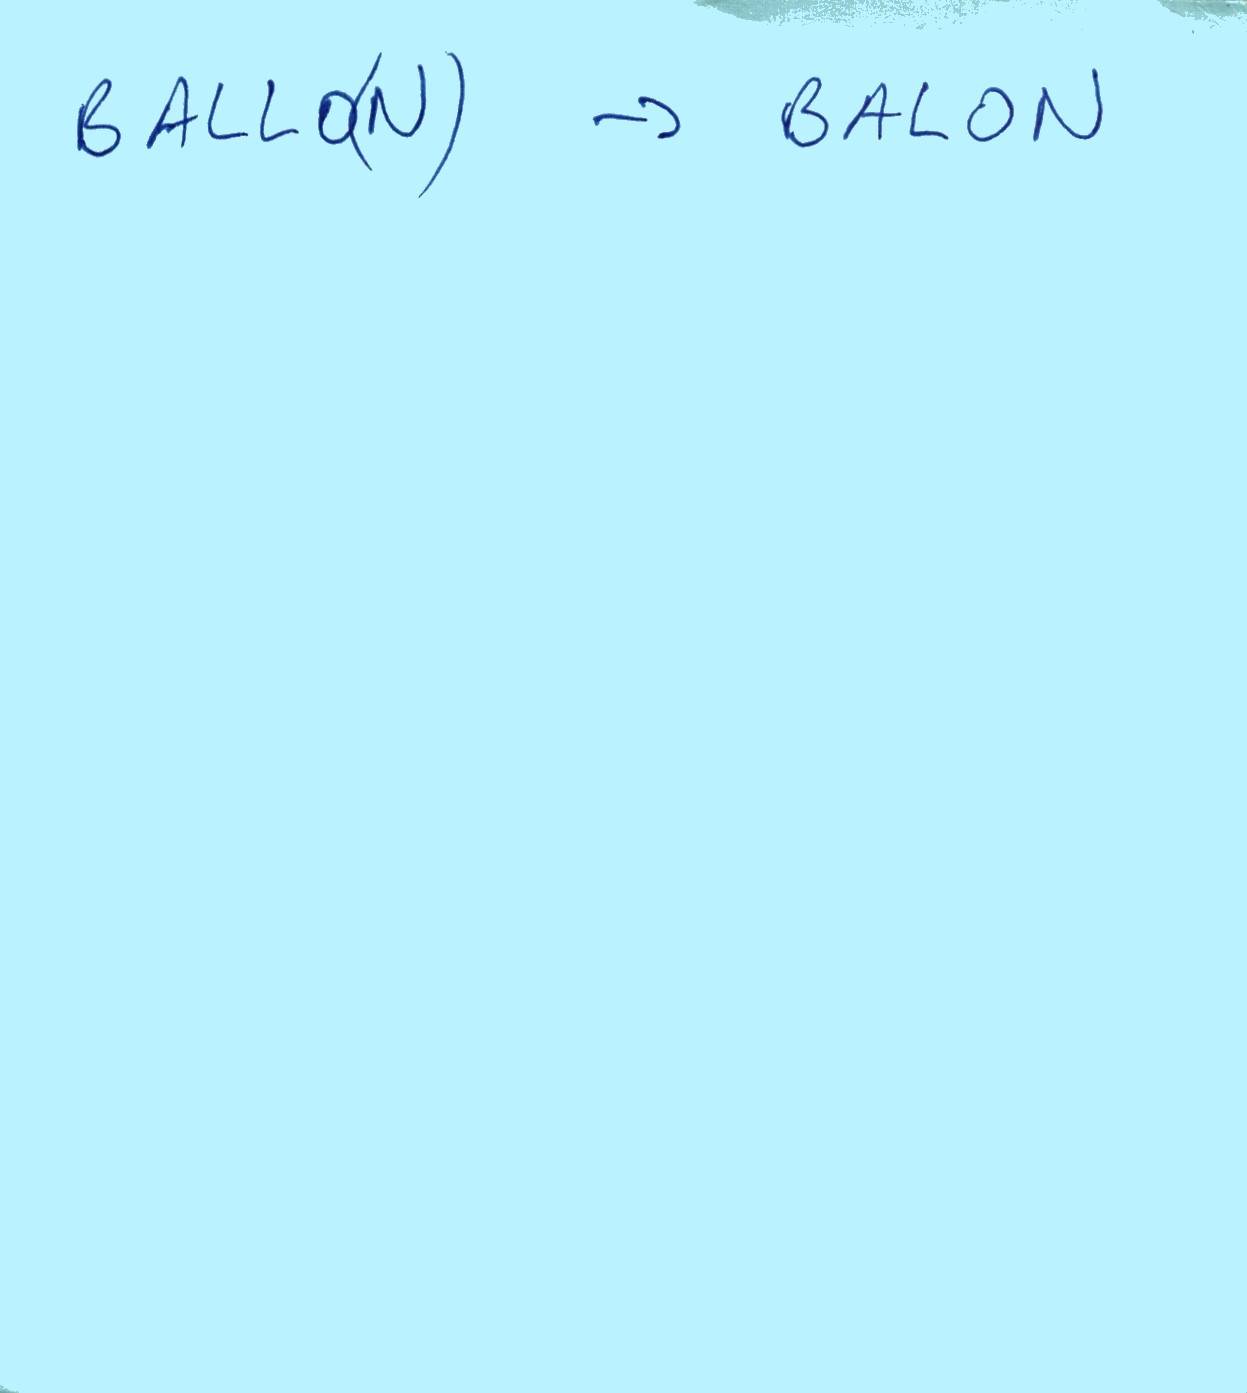 BALLO(N) → BALON